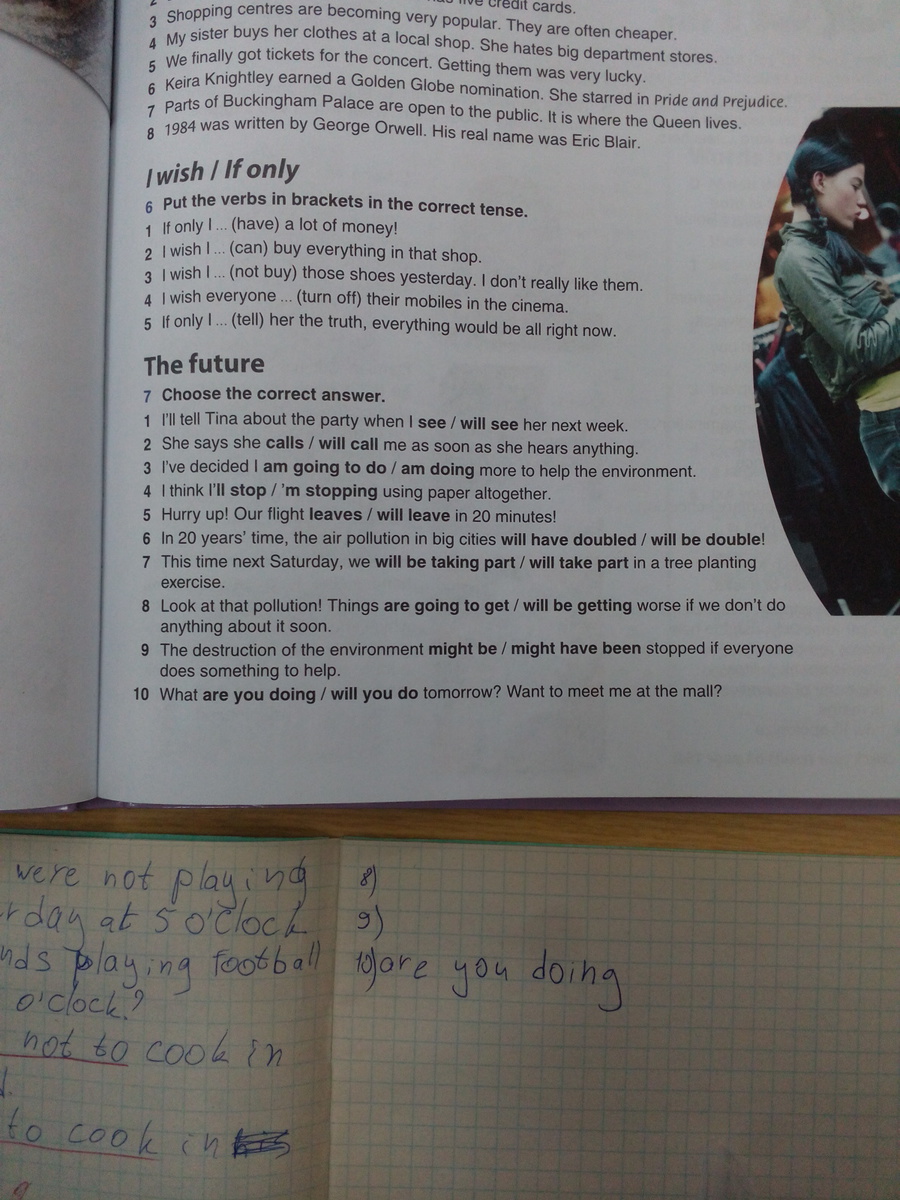 five credit cards.
3 Shopping centres are becoming very popular. They are often cheaper.
4 My sister buys her clothes at a local shop. She hates big department stores.
5 We finally got tickets for the concert. Getting them was very lucky.
6 Keira Knightley earned a Golden Globe nomination. She starred in Pride and Prejudice.
7 Parts of Buckingham Palace are open to the public. It is where the Queen lives.
8 1984 was written by George Orwell. His real name was Eric Blair.
I wish / If only
6 Put the verbs in brackets in the correct tense.
1 If only I ... (have) a lot of money!
2 I wish I ... (can) buy everything in that shop.
3 I wish I ... (not buy) those shoes yesterday. I don't really like them.
4 I wish everyone ... (turn off) their mobiles in the cinema.
5 If only I ... (tell) her the truth, everything would be all right now.
The future
7 Choose the correct answer.
1 I'll tell Tina about the party when I see / will see her next week.
2 She says she calls / will call me as soon as she hears anything.
3 I've decided I am going to do / am doing more to help the environment.
4 I think I'll stop / 'm stopping using paper altogether.
5 Hurry up! Our flight leaves / will leave in 20 minutes!
6 In 20 years' time, the air pollution in big cities will have doubled / will be double!
7 This time next Saturday, we will be taking part / will take part in a tree planting
exercise.
8 Look at that pollution! Things are going to get / will be getting worse if we don't do
anything about it soon.
9 The destruction of the environment might be / might have been stopped if everyone
does something to help.
10 What are you doing / will you do tomorrow? Want to meet me at the mall?
were not playing
rday at 5 o'clock
nds playing football
o'clock?
not to cook in
to cook in
8)
9)
10) are you doing